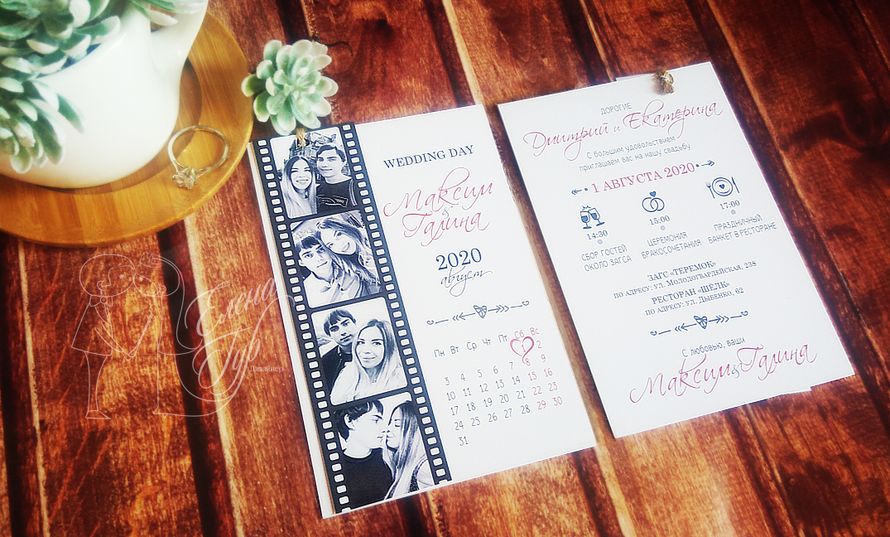 WEDDING DAY
Максим
&
Галина
2020
август
Пн Вт Ср Чт Пт Сб Вс
1 2
3 4 5 6 7 8 9
10 11 12 13 14 15 16
17 18 19 20 21 22 23
24 25 26 27 28 29 30
31
ДОРОГИЕ
Дмитрий и Екатерина
С большим удовольствием
приглашаем вас на нашу свадьбу
1 АВГУСТА 2020
14:30 15:00 17:00
СБОР ГОСТЕЙ
ОКОЛО ЗАГСА
ЦЕРЕМОНИЯ
БРАКОСОЧЕТАНИЯ
ПРАЗДНИЧНЫЙ
БАНКЕТ В РЕСТОРАНЕ
ЗАГС «ТЕРЕМОК»
ПО АДРЕСУ: УЛ. МОЛОДОГВАРДЕЙСКАЯ, 238
РЕСТОРАН «ШЁЛК»
ПО АДРЕСУ: УЛ. ДЫБЕНКО, 62
С любовью, ваши
Максим&Галина
Елена
Гур
Дизайнер